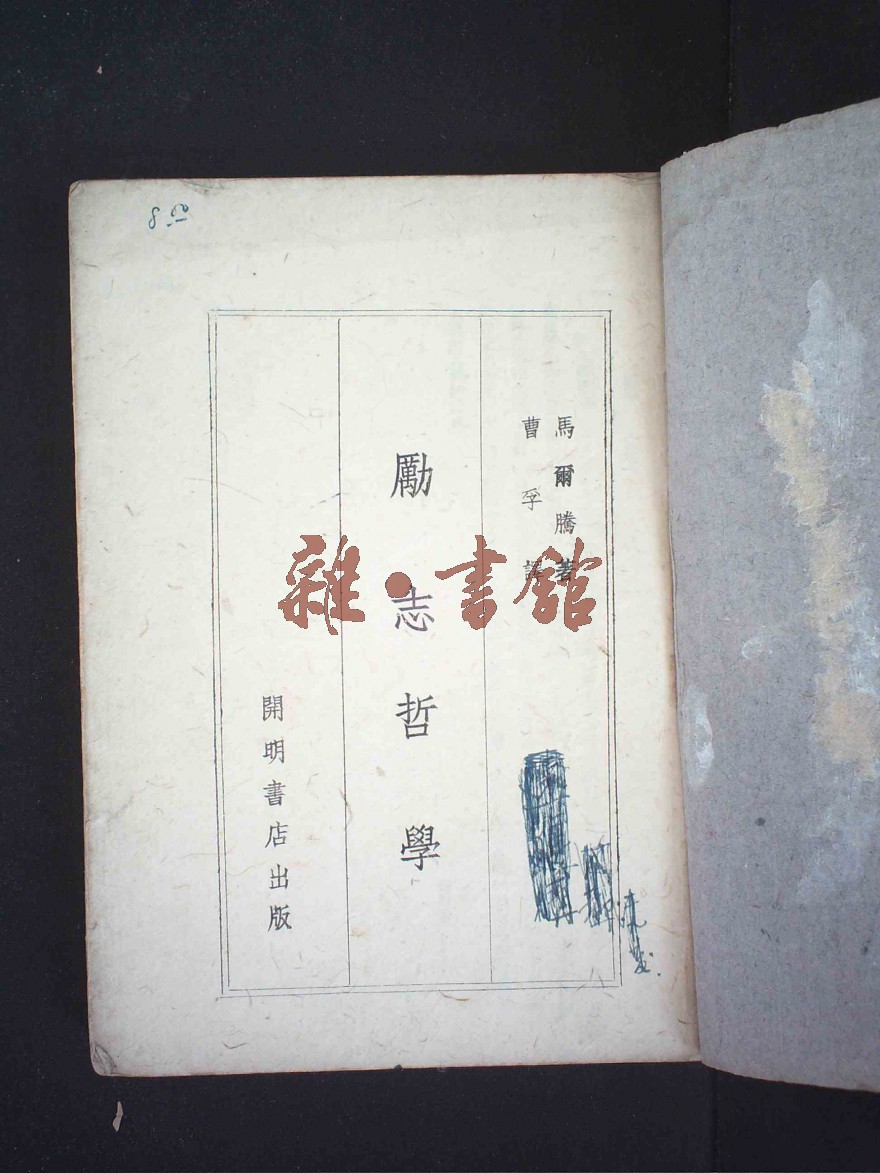 8.50
馬爾騰著
曹孚譯
勵志哲學
開明書店出版
雜·書館